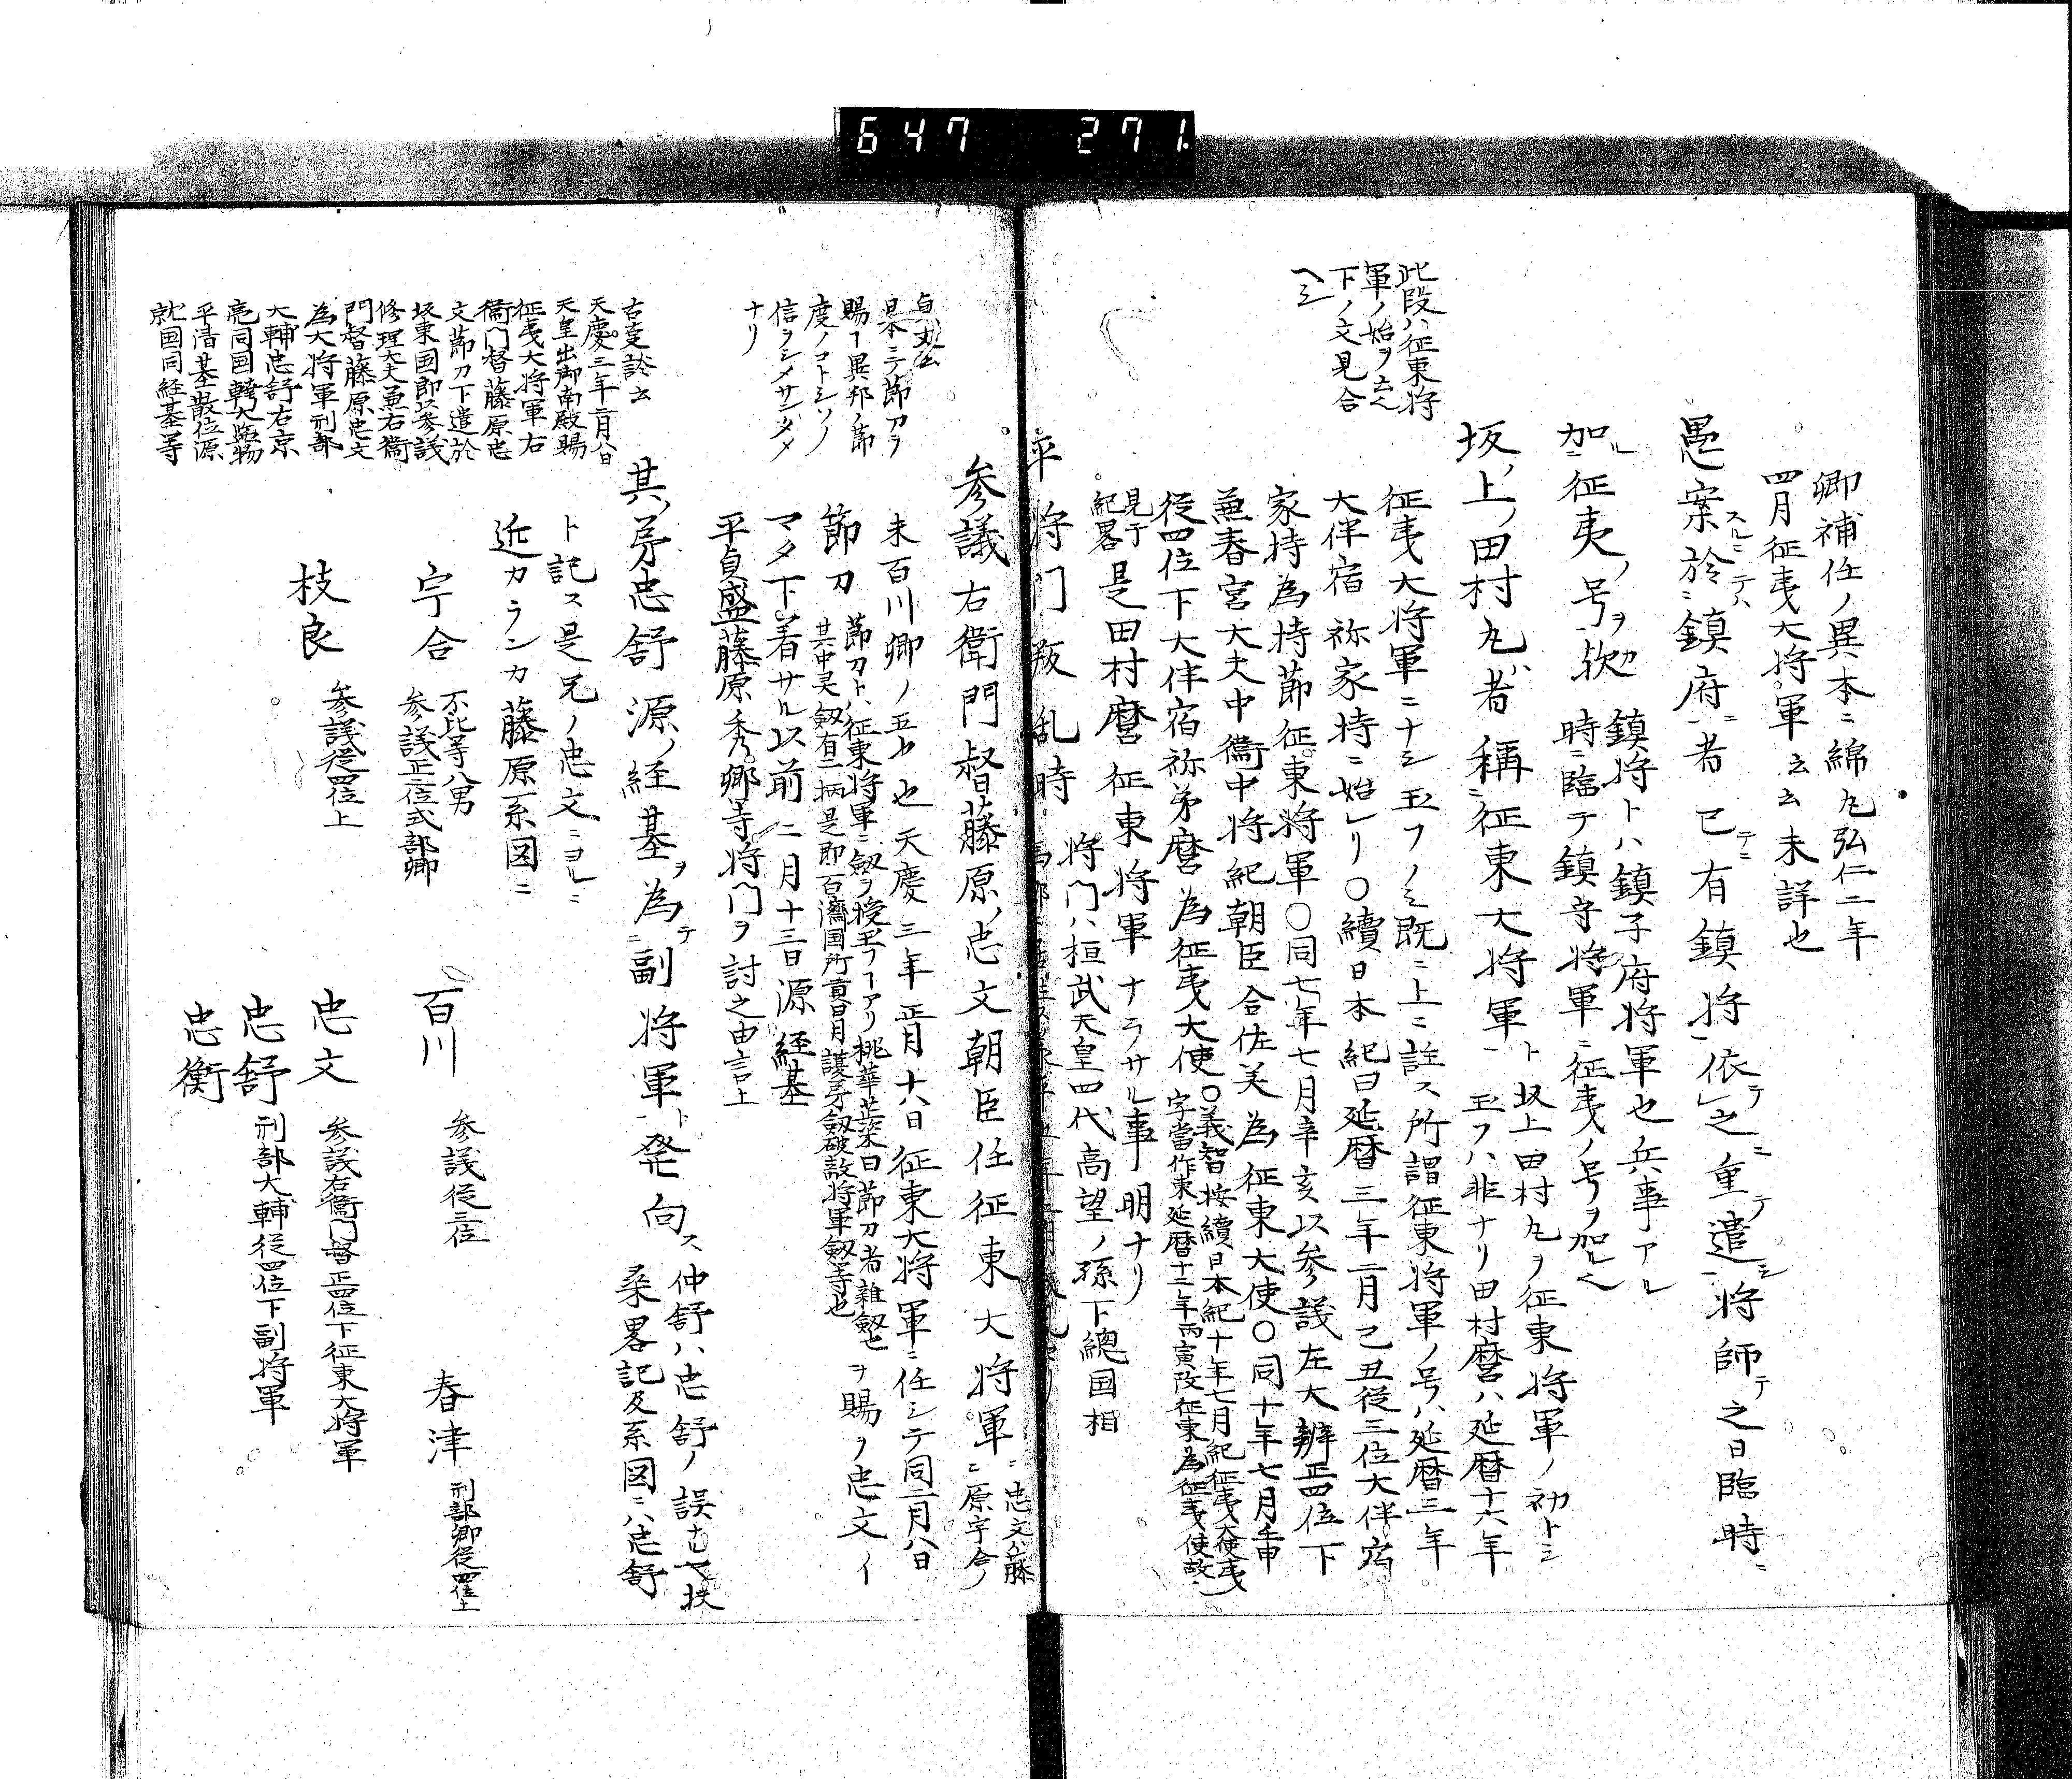 647 271
此段ハ征東将
軍ノ始ヲ云ヘ
下ノ文見合
ヘシ
卿補任ノ異本ニ綿丸弘仁二年
四月征夷大将軍云云未詳也
愚案スルニ於テハ鎮府ニ者已ニ有テ鎮将依テ之ニ重テ遣シ将師テ之日臨時ニ
加ルニ征夷ノ号ヲ欤
鎮将トハ鎮守府将軍也兵事アル
時ニ臨テ鎮守将軍ニ征夷ノ号ヲ加ルヘ
坂ノ上ノ田村丸ハ者稱ニ征東大将軍ト
坂上田村丸ヲ征東将軍ノ初トシ
玉フハ非ナリ田村麿ハ延暦十六年
征夷大将軍ニナシ玉フノミ既ニ上ニ註ス所謂征東将軍ノ号ハ延暦三年
大伴宿祢家持ニ始レリ〇續日本紀曰延暦三年二月己丑従三位大伴宿
家持為持節征東将軍〇同七年七月辛亥以参議左大辨正四位下
兼春宮大夫中衞中将紀朝臣合佐美為征東大使〇同十年七月壬申
従四位下大伴宿祢弟麿為征夷大使
〇義智按續日本紀十年七月紀征夷大使夷
字當作東延暦十二年丙寅改征東為征夷使故
見于
紀畧
是田村麿征東将軍ナラサル事明ナリ
平将門叛乱時
将門ハ桓武天皇四代高望ノ孫下總国相
参議右衛門督藤原ノ忠文朝臣任征東大将軍ニ
忠文ハ藤
原宇合ノ
末百川卿ノ五世也天慶三年正月十八日征東大将軍ニ任シテ同二月八日
節刀
節刀トハ征東将軍ニ劔ヲ授玉フヿアリ桃華蘂葉曰節刀者雜劔也
其中灵劔有二柄是即百濟国所貢日月護身劔破敵将軍劔等也
ヲ賜フ忠文イ
マタ下着サル以前二月十三日源経基
平貞盛藤原ノ秀郷等将門ヲ討之由言上
其ノ弟忠舒源ノ経基ヲ為テニ副将軍ト発向ス
仲舒ハ忠舒ノ誤ナラン扶
桑畧記及系図ニハ忠舒
ト記ス是兄ノ忠文ニヨルニ
近カランカ藤原系図ニ
宇合
不比等八男
参議正三位式部卿
百川
参議従三位
春津
刑部卿従四位上
枝良
参議従四位上
忠文
参議右衞門督正四位下征東大将軍
忠舒
刑部大輔従四位下副将軍
忠衡
貞丈云
日本ニテ節刀ヲ
賜フ異邦ノ節
度ノコトシソノ
信ヲシメサンタメ
ナリ
古事談云
天慶三年二月八日
天皇出御南殿賜
征夷大将軍右
衞門督藤原忠
文節刀下遣於
坂東国即以参議
修理大夫兼右衞
門督藤原忠文
為大将軍刑部
大輔忠舒右京
亮同国幹大監物
平清基散位源
就国同経基等